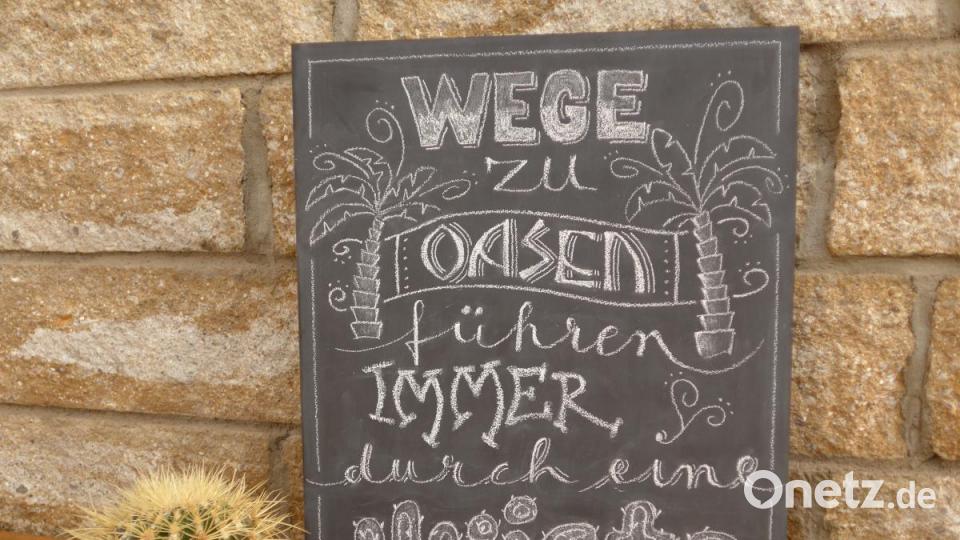 WEGE
zu
OASEN
führen
IMMER
durch eine
Onetz.de